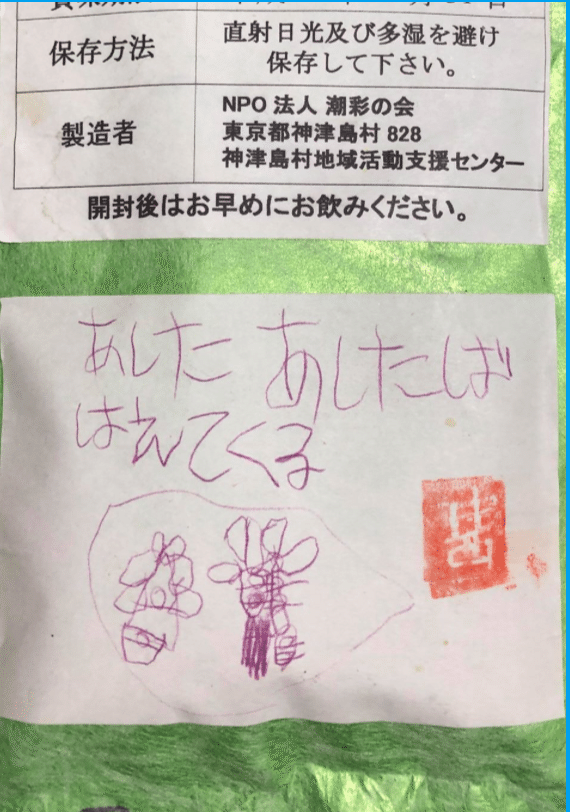 保存方法
直射日光及び多湿を避け
保存して下さい。
製造者
NPO 法人 潮彩の会
東京都神津島村 828
神津島村地域活動支援センター
開封後はお早めにお飲みください。
あした あしたば
はえてくる